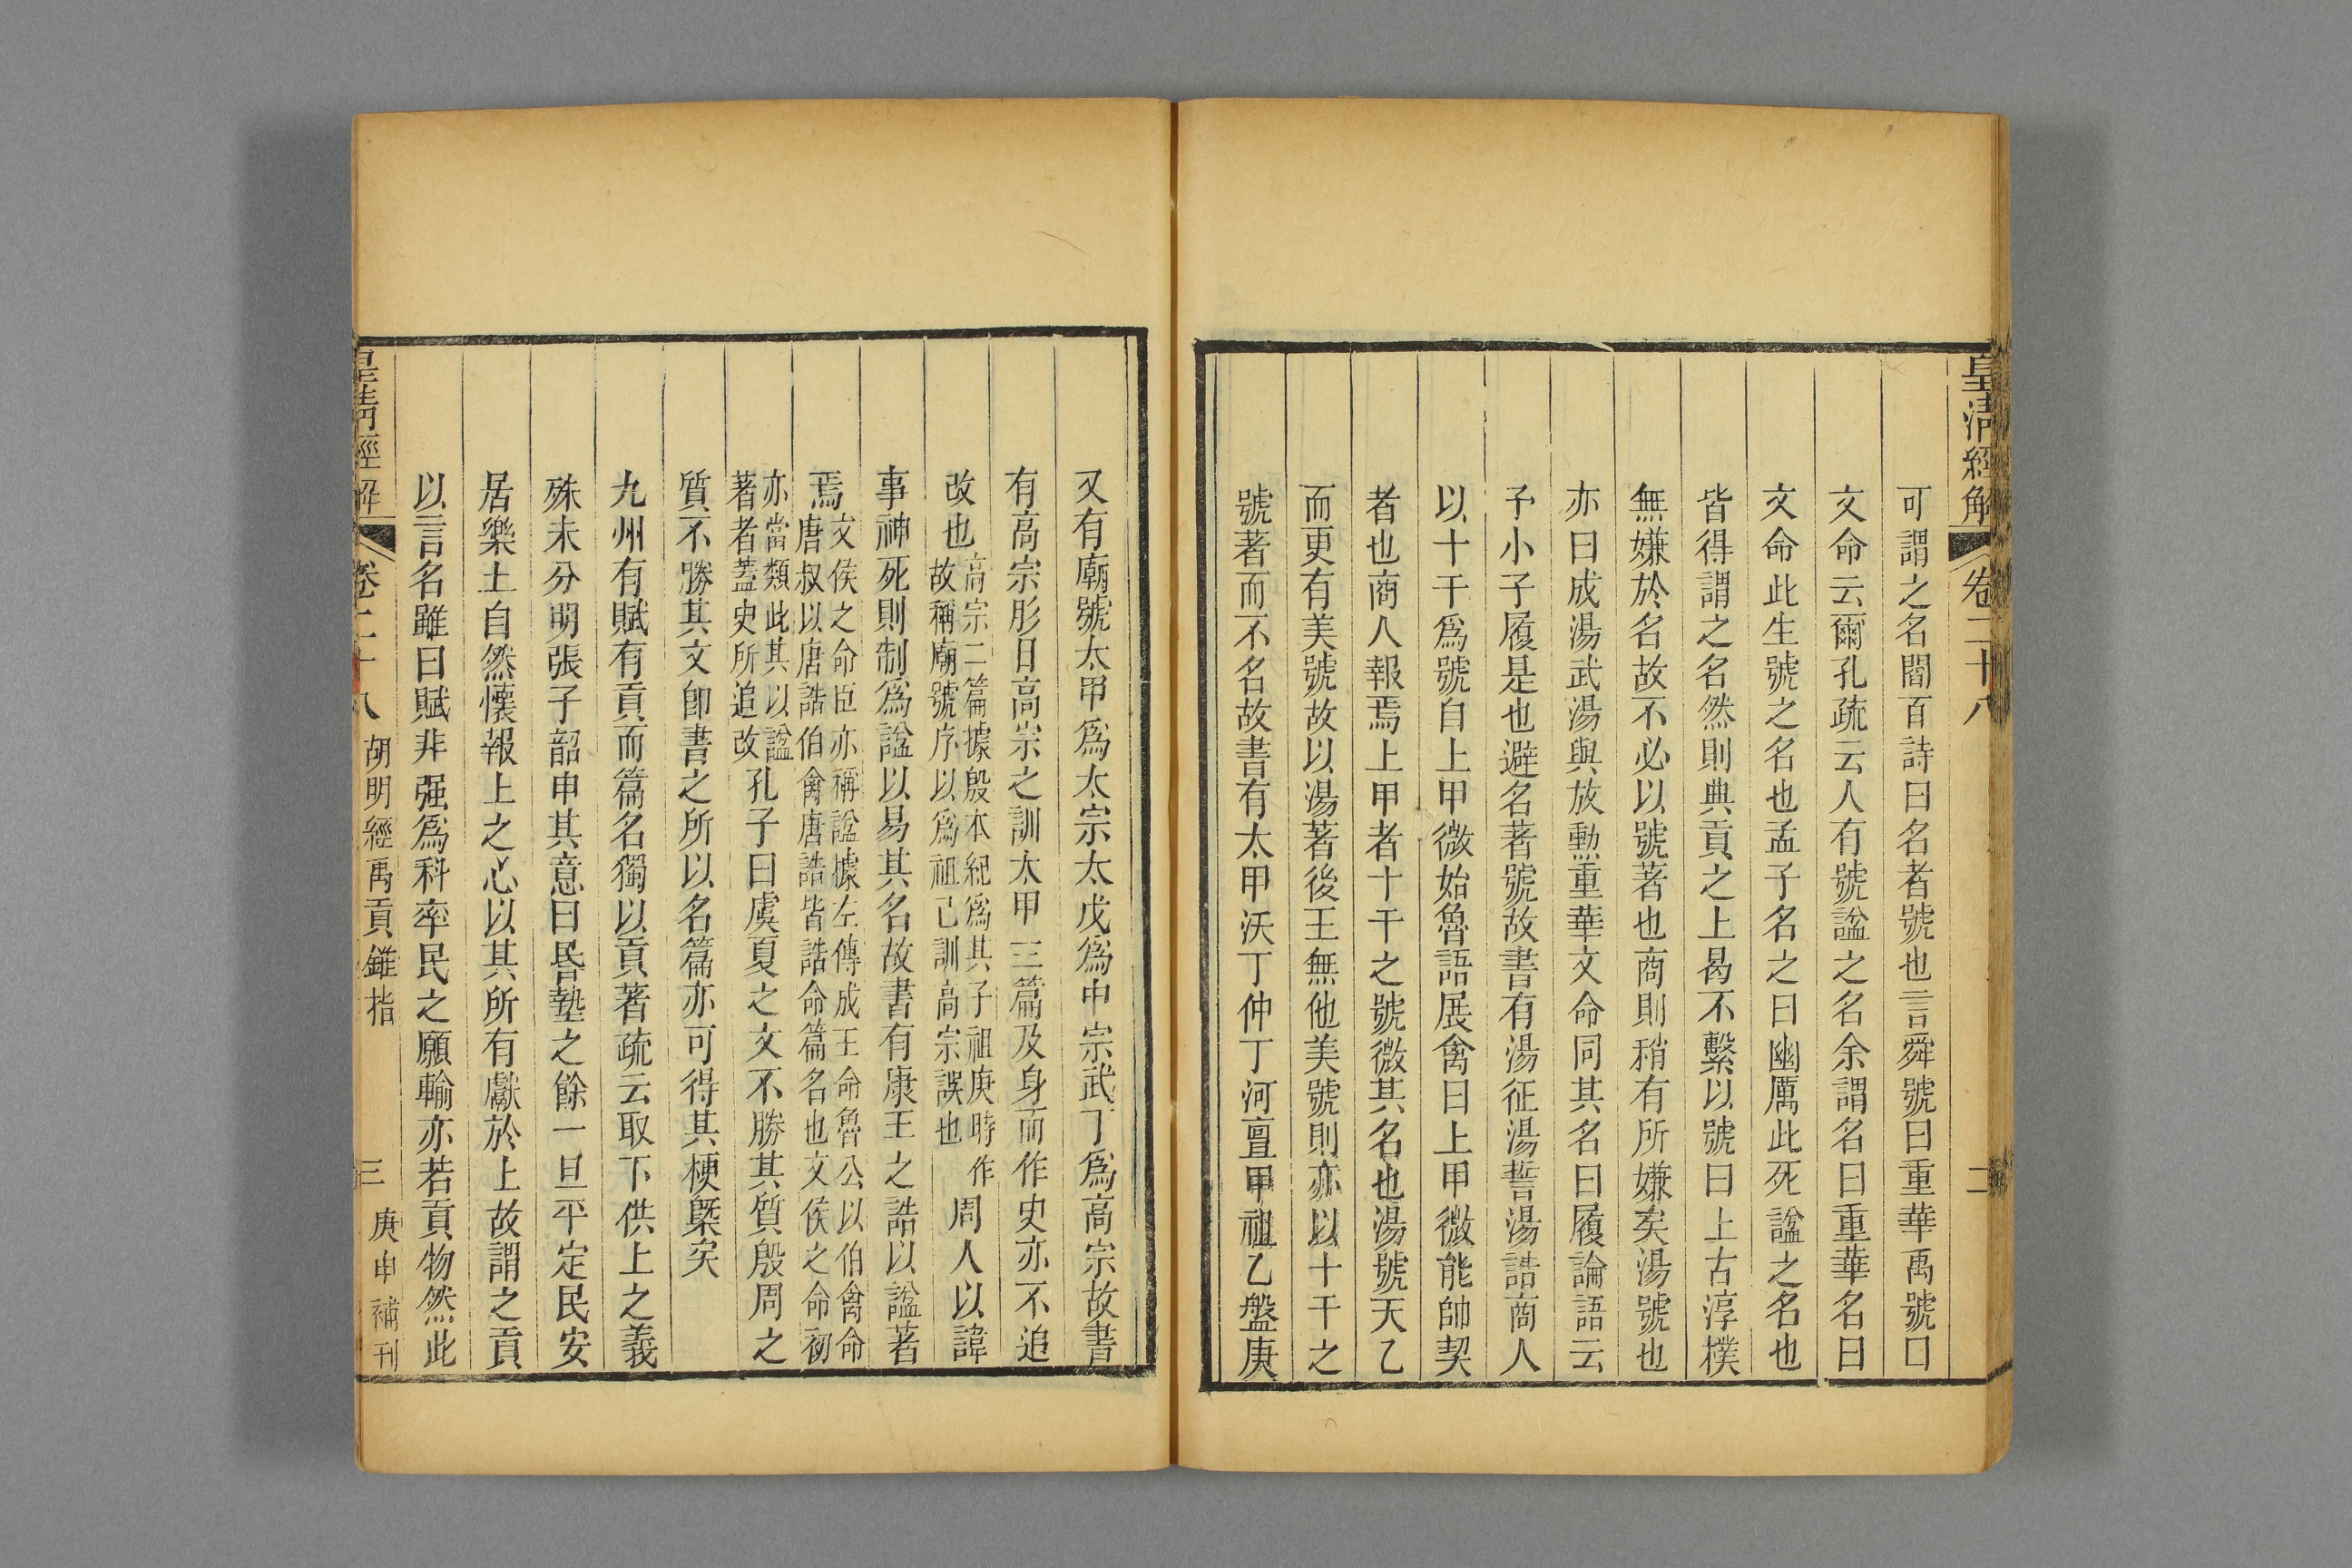 皇清經解 卷二十八 二
可謂之名閻百詩曰名者號也言舜號曰重華禹號曰
文命云爾孔疏云人有號諡之名余謂名曰重華名曰
文命此生號之名也孟子名之曰幽厲此死諡之名也
皆得謂之名然則典貢之上曷不繫以號曰上古淳樸
無嫌於名故不必以號著也商則稍有所嫌矣湯號也
亦曰成湯武湯與放勲重華文命同其名曰履論語云
予小子履是也避名著號故書有湯征湯誓湯誥商人
以十干爲號自上甲微始魯語展禽曰上甲微能帥契
者也商人報焉上甲者十干之號微其名也湯號天乙
而更有美號故以湯著後王無他美號則亦以十干之
號著而不名故書有太甲沃丁仲丁河亶甲祖乙盤庚
又有廟號太甲爲太宗太戊爲中宗武丁爲高宗故書
有高宗肜日高宗之訓太甲三篇及身而作史亦不追
改也高宗二篇據殷本紀爲其子祖庚時作故稱廟號序以爲祖己訓高宗誤也周人以諱
事神死則制爲諡以易其名故書有康王之誥以諡著
焉文侯之命臣亦稱諡據左傳成王命魯公以伯禽命唐叔以唐誥伯禽唐誥皆誥命篇名也文侯之命初
亦當類此其以諡著者蓋史所追改孔子曰虞夏之文不勝其質殷周之
質不勝其文卽書之所以名篇亦可得其梗槩矣
九州有賦有貢而篇名獨以貢著疏云取下供上之義
殊未分明張子韶申其意曰昏墊之餘一旦平定民安
居樂土自然懷報上之心以其所有獻於上故謂之貢
以言名雖曰賦非强爲科率民之願輸亦若貢物然此
皇清經解 卷二十八 胡明經禹貢錐指 三 庚申補刊